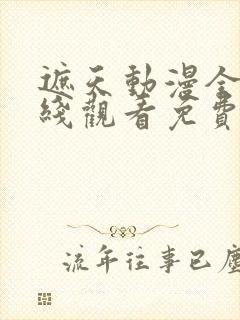 遮天動漫全
綫觀看免費
流年往事已塵